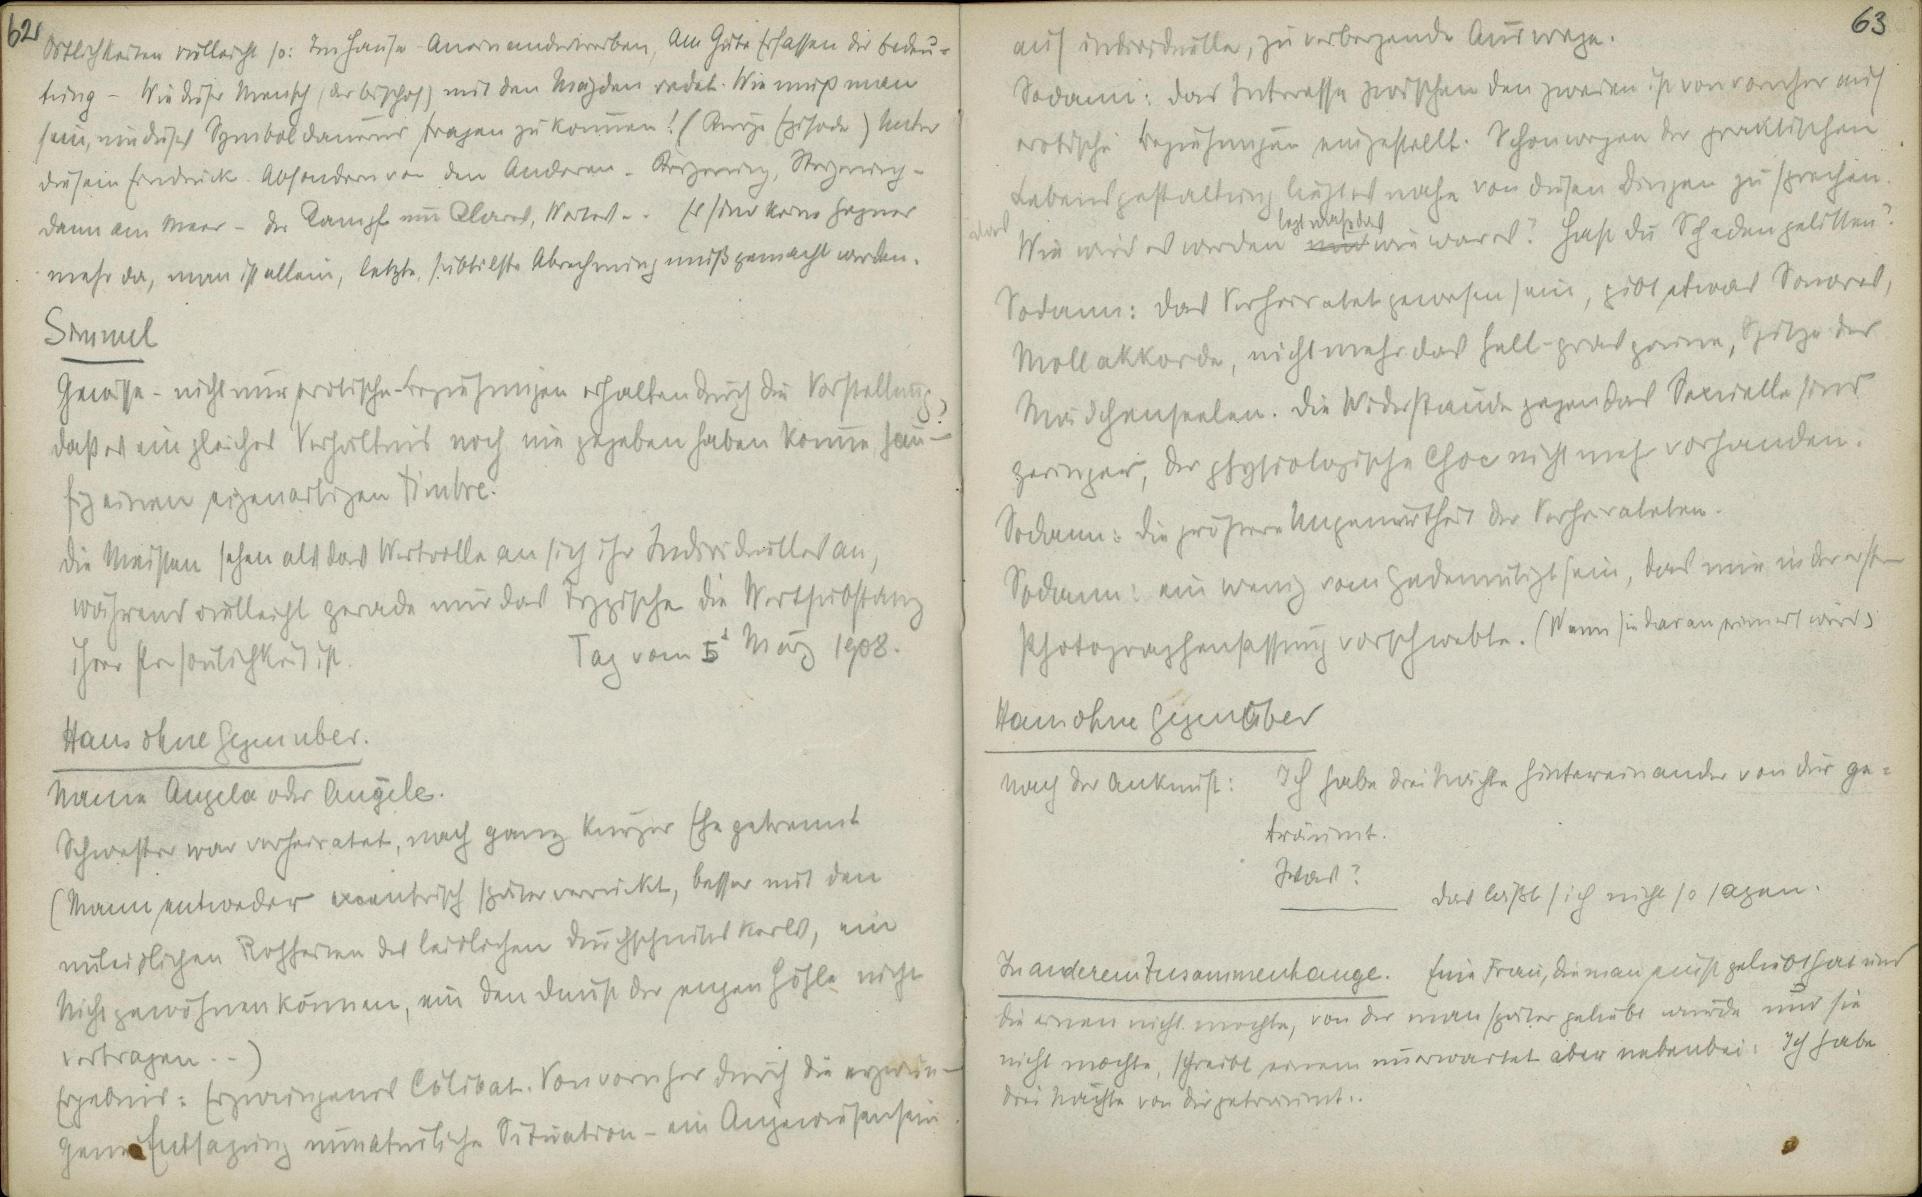 62
Örtlichkeiten vielleicht so: Im Hause Aneinandertreiben, Am Gute Erfassen der Bedeu-
tung – Wie dieser Mensch (der Bischof) mit den Mägden redet. Wie muß man
sein, um dieses Symbol dauernd tragen zu können! (Kurze Episode) Unter
diesem Eindruck Absondern von den Anderen – Steigerung –
dann am Meer – der Kampf um Klares, Wertes – . Es sind keine Gegner
mehr da, man ist allein, letzte, subtilste Abrechnung muß gemacht werden.
Simmel
Gewisse – nicht nur erotische – Beziehungen erhalten durch die Vorstellung,
daß es ein gleiches Verhältnis noch nie gegeben haben könne, häu-
fig einen eigenartigen Timbre.
Die Meisten sehen als das Wertvolle an sich ihr Individuelles an,
während vielleicht gerade nur das Typische die Wertsubstanz
ihrer Persönlichkeit ist. Tag vom 5t März 1908.
Haus ohne Gegenüber.
Name Angela oder Angèle.
Schwester war verheiratet, nach ganz kurzer Ehe getrennt
(Mann entweder excentrisch später verrückt, besser mit den
unleidlichen Rohheiten des leidlichen Durchschnittskerls, ein
Nichtgewöhnenkönnen, ein den Dunst der engen Höhle nicht
vertragen . –)
Ergebnis: Erzwungenes Cölibat. Von vornher durch die erzwun-
gene Entsagung unnatürliche Situation – ein Angewiesensein
63
auf individuelle, zu verbergende Auswege.
Sodann: das Interesse zwischen den zweien ist von vornher auf
erotische Beziehungen eingestellt. Schon wegen der praktischen
Lebensgestaltung liegt es nahe von diesen Dingen zu sprechen.
legt nahe das
das Wie wird es werden und wie war es? Hast du Schaden gelitten?
Sodann: Das Verheiratet gewesen sein, gibt etwas Sonores,
Mollakkorde, nicht mehr das hell-grasgrüne, Spitze der
Mädchenseelen. Die Widerstände gegen das Sexuelle sind
geringer, der physiologische Choc nicht mehr vorhanden.
Sodann: die größere Ungeniertheit der Verheirateten.
Sodann: ein wenig vom Gedemütigt sein, das mir in der ersten
Photographenfassung vorschwebte. (Wenn sie daran erinnert wird)
Haus ohne Gegenüber
Nach der Ankunft: Ich habe drei Nächte hintereinander von dir ge-
träumt.
Was?
Das läßt sich nicht so sagen.
In anderem Zusammenhange. Eine Frau, die man einst geliebt hat und
die einen nicht mochte, von der man später geliebt wurde und sie
nicht mochte, schreibt einem unerwartet aber nebenbei: Ich habe
drei Nächte von dir geträumt..